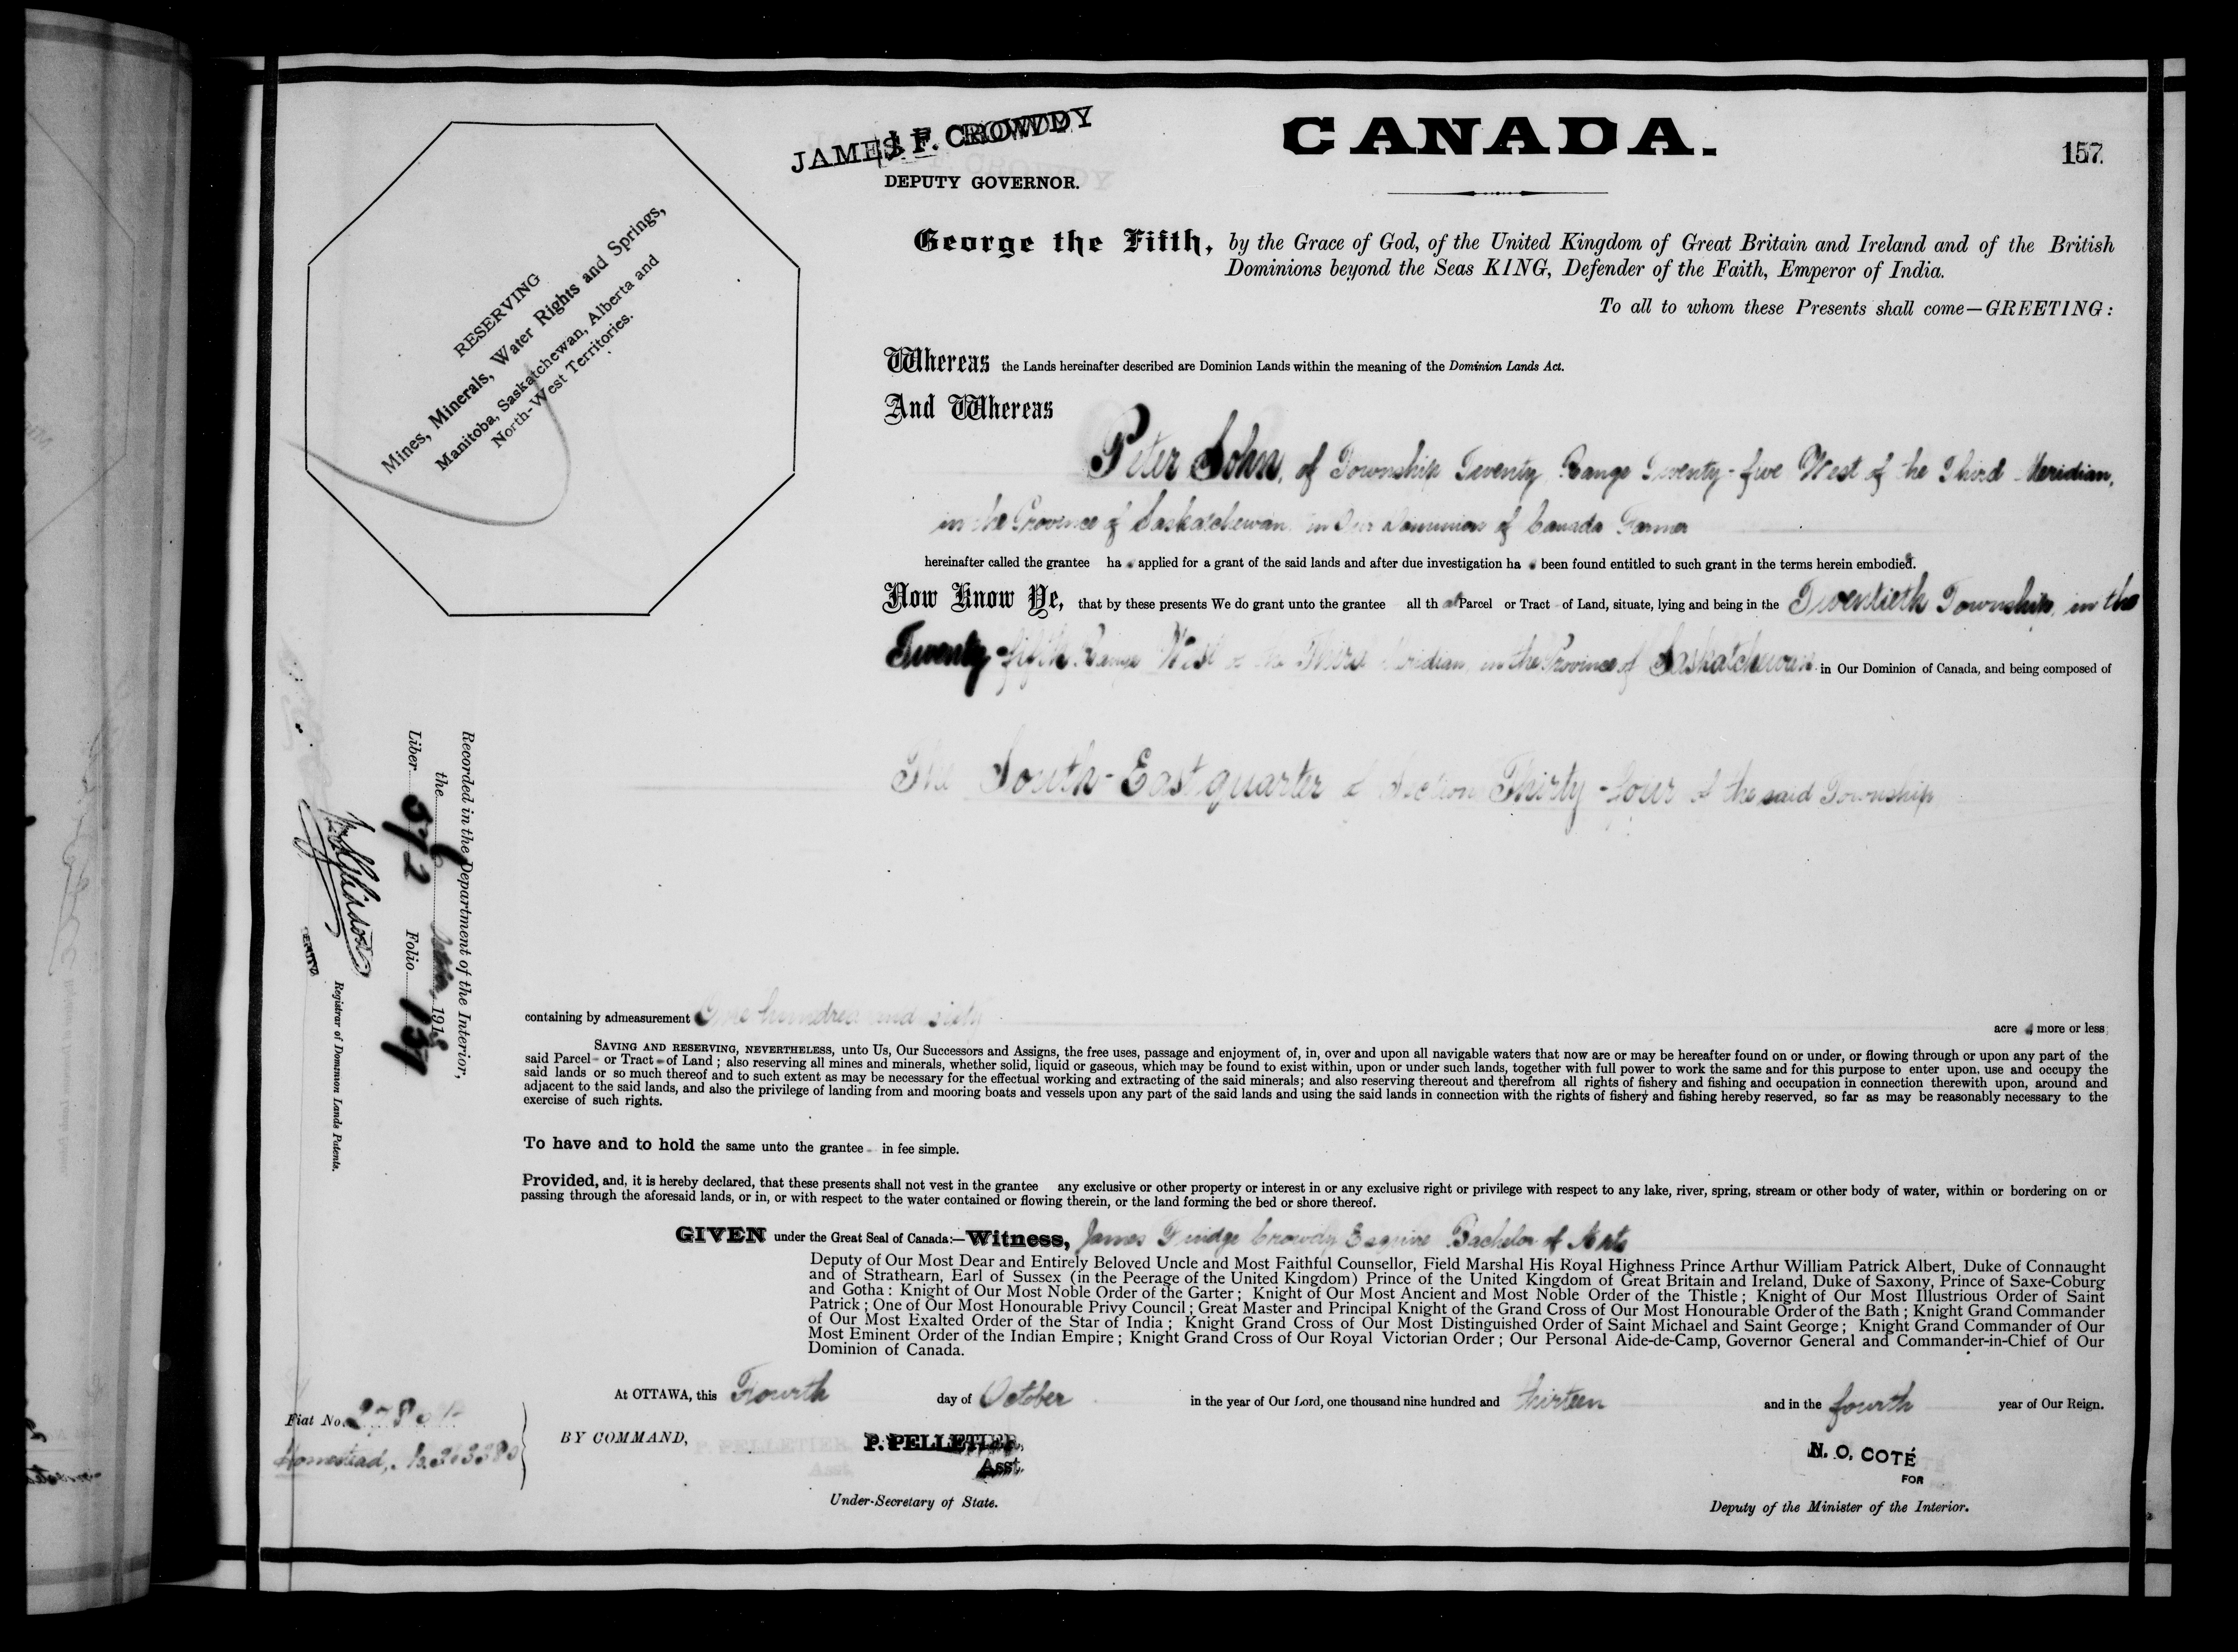 JAMES F. CROWDY
DEPUTY GOVERNOR.
CANADA.
157.
RESERVING
Mines, Minerals, Water Rights and Springs,
Manitoba, Saskatchewan, Alberta and
North-West Territories.
George the Fifth, by the Grace of God, of the United Kingdom of Great Britain and Ireland and of the British
Dominions beyond the Seas KING, Defender of the Faith, Emperor of India.
To all to whom these Presents shall come—GREETING:
Whereas the Lands hereinafter described are Dominion Lands within the meaning of the Dominion Lands Act.
And Whereas
Peter John, of Township Twenty Range Twenty-five West of the Third Meridian,
in the Province of Saskatchewan in Our Dominion of Canada Farmer
hereinafter called the grantee has applied for a grant of the said lands and after due investigation has been found entitled to such grant in the terms herein embodied.
Now Know Ye, that by these presents We do grant unto the grantee all that Parcel or Tract of Land, situate, lying and being in the Twentieth Township, in the
Twenty-fifth Range West of the Third Meridian, in the Province of Saskatchewan in Our Dominion of Canada, and being composed of
The South-East quarter of Section Thirty-four of the said Township
containing by admeasurement One hundred and sixty acres more or less;
SAVING AND RESERVING, NEVERTHELESS, unto Us, Our Successors and Assigns, the free uses, passage and enjoyment of, in, over and upon all navigable waters that now are or may be hereafter found on or under, or flowing through or upon any part of the
said Parcel or Tract of Land; also reserving all mines and minerals, whether solid, liquid or gaseous, which may be found to exist within, upon or under such lands, together with full power to work the same and for this purpose to enter upon, use and occupy the
said lands or so much thereof and to such extent as may be necessary for the effectual working and extracting of the said minerals; and also reserving thereout and therefrom all rights of fishery and fishing and occupation in connection therewith upon, around and
adjacent to the said lands, and also the privilege of landing from and mooring boats and vessels upon any part of the said lands and using the said lands in connection with the rights of fishery and fishing hereby reserved, so far as may be reasonably necessary to the
exercise of such rights.
To have and to hold the same unto the grantee in fee simple.
Provided, and, it is hereby declared, that these presents shall not vest in the grantee any exclusive or other property or interest in or any exclusive right or privilege with respect to any lake, river, spring, stream or other body of water, within or bordering on or
passing through the aforesaid lands, or in, or with respect to the water contained or flowing therein, or the land forming the bed or shore thereof.
GIVEN under the Great Seal of Canada:—Witness, James Fuidge Crowdy Esquire Bachelor of Arts
Deputy of Our Most Dear and Entirely Beloved Uncle and Most Faithful Counsellor, Field Marshal His Royal Highness Prince Arthur William Patrick Albert, Duke of Connaught
and of Strathearn, Earl of Sussex (in the Peerage of the United Kingdom) Prince of the United Kingdom of Great Britain and Ireland, Duke of Saxony, Prince of Saxe-Coburg
and Gotha: Knight of Our Most Noble Order of the Garter; Knight of Our Most Ancient and Most Noble Order of the Thistle; Knight of Our Most Illustrious Order of Saint
Patrick; One of Our Most Honourable Privy Council; Great Master and Principal Knight of the Grand Cross of Our Most Honourable Order of the Bath; Knight Grand Commander
of Our Most Exalted Order of the Star of India; Knight Grand Cross of Our Most Distinguished Order of Saint Michael and Saint George; Knight Grand Commander of Our
Most Eminent Order of the Indian Empire; Knight Grand Cross of Our Royal Victorian Order; Our Personal Aide-de-Camp, Governor General and Commander-in-Chief of Our
Dominion of Canada.
At OTTAWA, this Fourth day of October in the year of Our Lord, one thousand nine hundred and thirteen and in the fourth year of Our Reign.
BY COMMAND,
P. PELLETIER,
Asst.
Under-Secretary of State.
N. O. COTÉ
FOR
Deputy of the Minister of the Interior.
Recorded in the Department of the Interior,
the 191
Liber 572 Folio 157
Registrar of Dominion Lands Patents.
Fiat No.
Homestead,